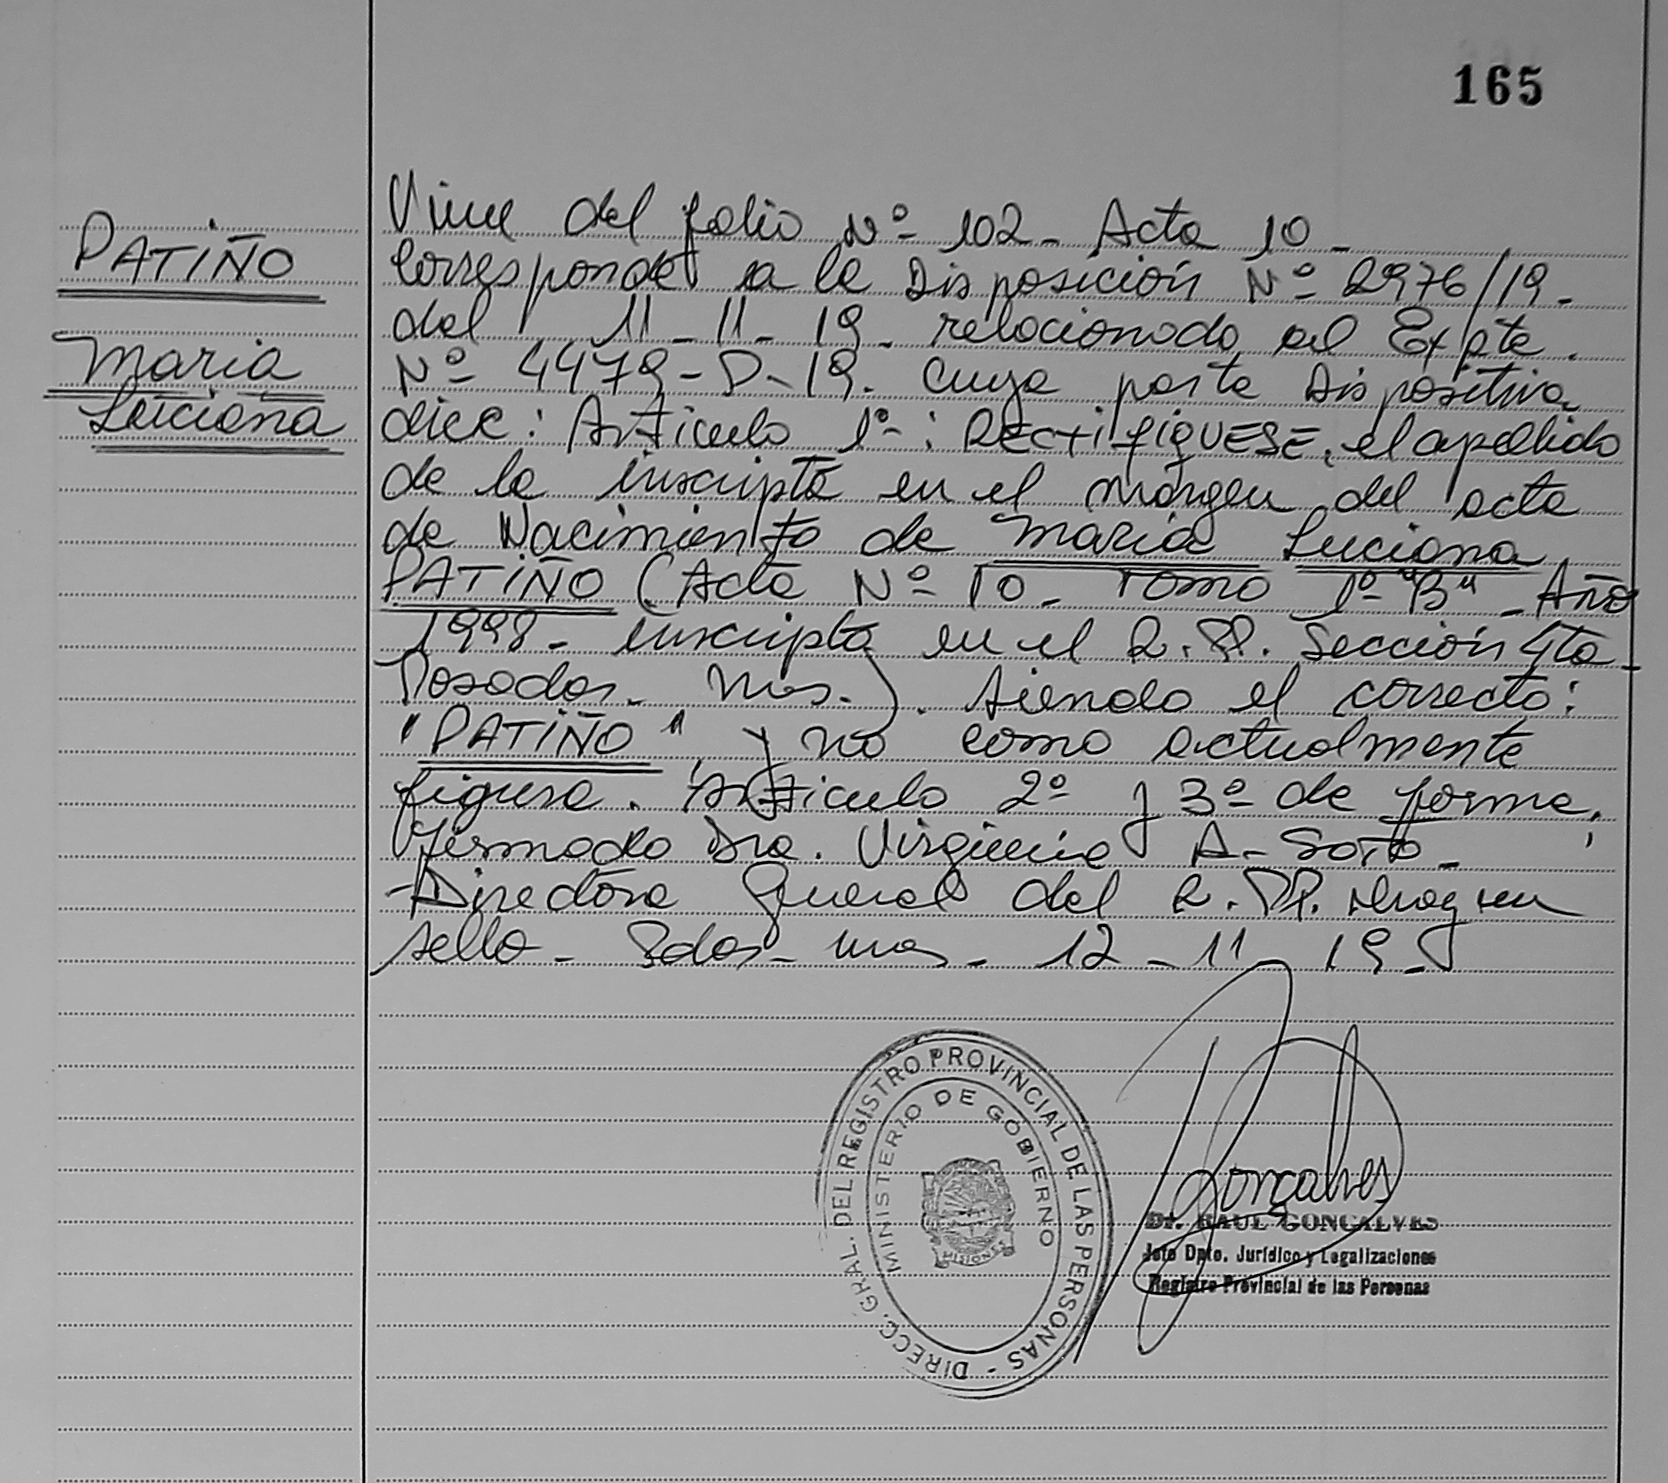 165
PATIÑO
Maria
Luciana
Viene del folio Nº 102 - Acta 10 -
Corresponde a la Disposición Nº 2976/19 -
del 11 - 11 - 19 - relacionado al Expte.
Nº 4479 - D - 19. Cuya parte Dispositiva
dice: Artículo 1º: RECTIFIQUESE, el apellido
de la inscripta en el margen del acta
de Nacimiento de Maria Luciana
PATIÑO (Acta Nº 10 - Tomo 1º "B" - Año
1998 - inscripta en el R. PP. Sección 4ta -
Posadas - Mnes.). Siendo el correcto:
"PATIÑO", y no como actualmente
figura. Artículo 2º y 3º de forma,
firmado Dra. Virginia A. Soto -
Directora General del R. PP. Hay un
sello - Pdas - Mnes - 12 - 11 - 19 -
DIRECC. GRAL. DEL REGISTRO PROVINCIAL DE LAS PERSONAS -
MINISTERIO DE GOBIERNO
MISIONES
Gonçalves
Dr. RAUL GONCALVES
Jefe Dpto. Jurídico y Legalizaciones
Registro Provincial de las Personas